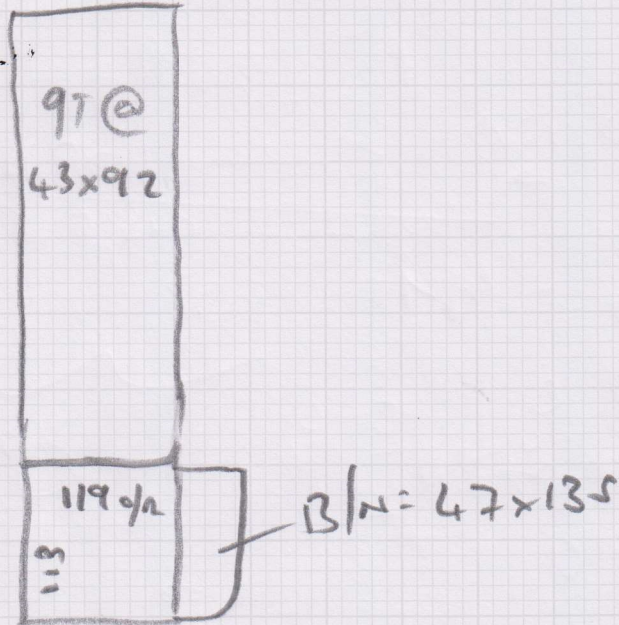 9T @
43x92
119 o/a
113
B/N = 47x135